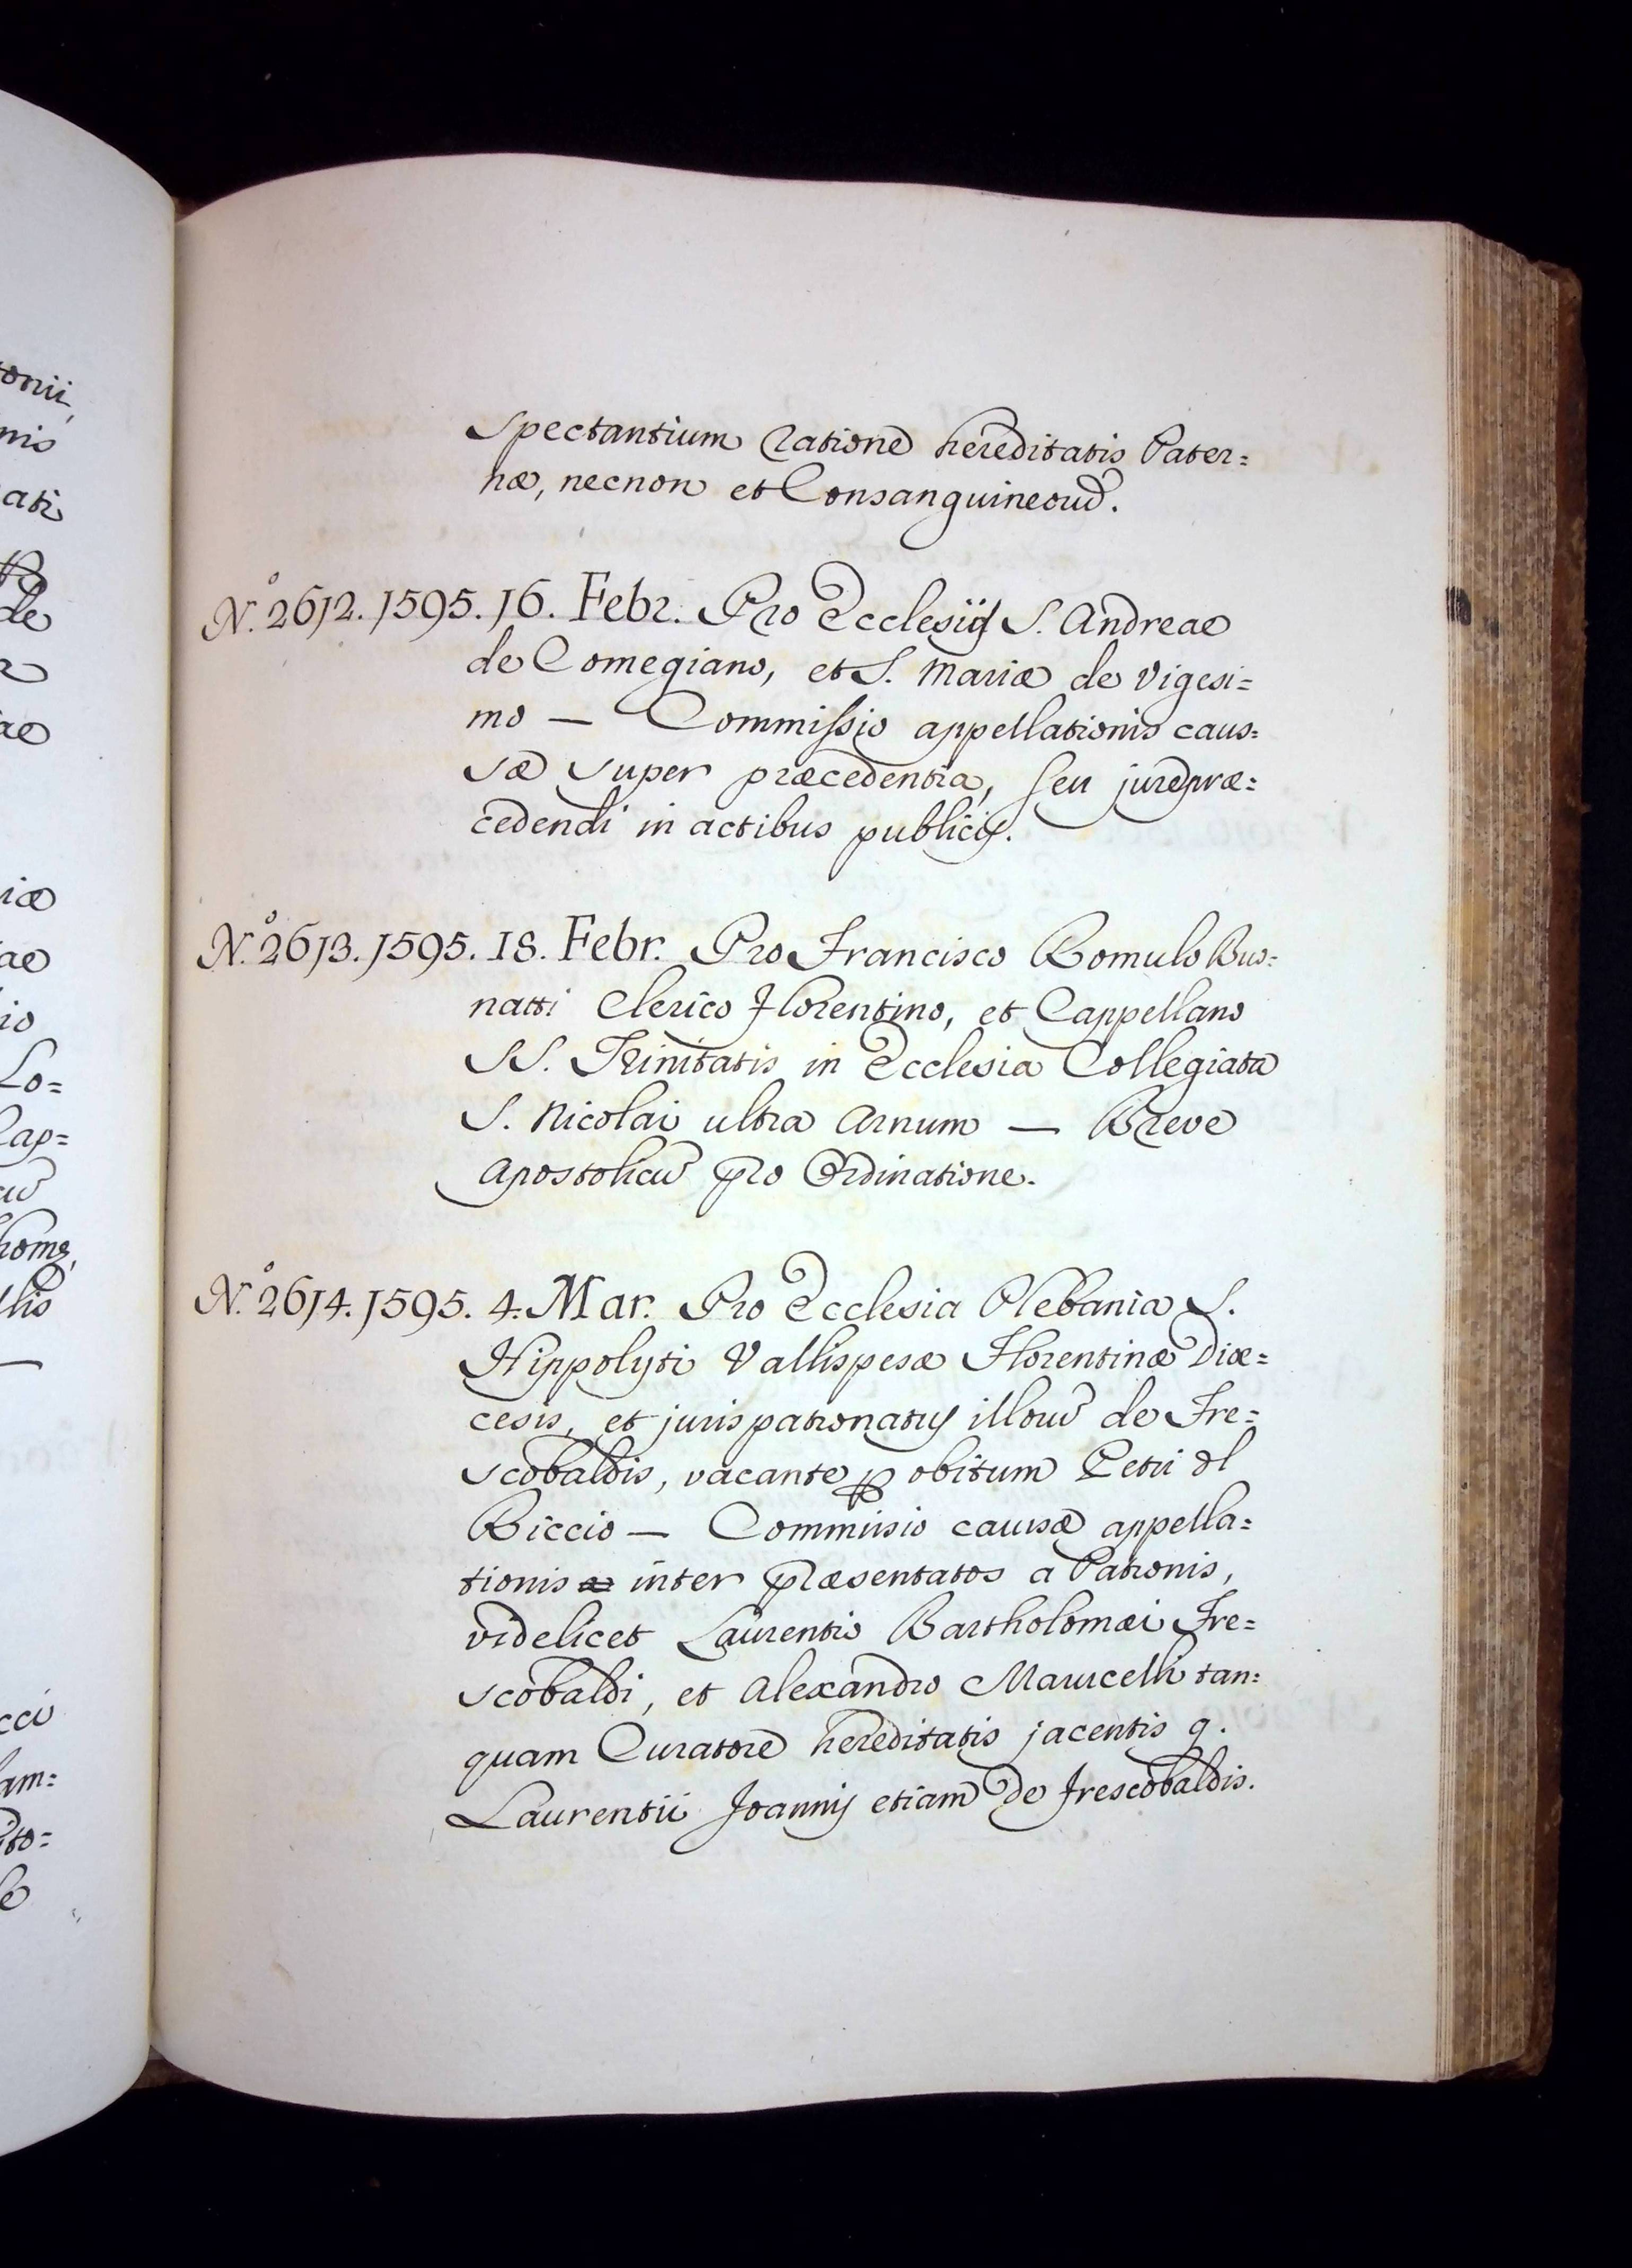 Spectantium ratione hereditatis Pater=
næ, necnon et Consanguineorũ.
N.º 2612. 1595. 16. Febr. Pro Ecclesiis S. Andreae
de Comegiano, et S. Mariæ de Vigesi=
mo — Commissio appellationis caus=
sæ super præcedentia, seu jure præ=
cedendi in actibus publicis.
N.º 2613. 1595. 18. Febr. Pro Francisco Romulo Bus=
natti Clerico Florentino, et Cappellano
SS. Trinitatis in Ecclesia Collegiata
S. Nicolai ultra Arnum — Breve
Apostolicũ pro Ordinatione.
N.º 2614. 1595. 4. Mar. Pro Ecclesia Plebania S.
Hippolyti Vallispesæ Florentinæ Diœ=
cesis, et jurispatronatus illorũ de Fre=
scobaldis, vacante p obitum Petri dl
Riccio — Commissio causæ appella=
tionis inter præsentatos a Patronis,
videlicet Laurentio Bartholomæi Fre=
scobaldi, et Alexandro Marucelli tan=
quam Curatore hereditatis jacentis q.
Laurentii Joannis etiam de Frescobaldis.
onii,
nis
ati
de
ae
iæ
ae
io
Lo=
Cap=
cũ
llis
—
cci
am=